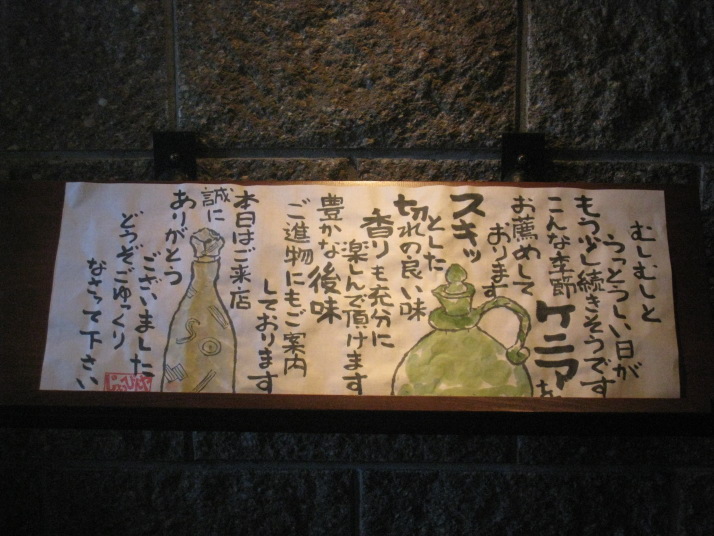 むしむしと
うっとうしい日が
もう少し続きそうです
こんな季節
ケニアを
お薦めして
おります
スキッ
とした
切れの良い味
香りも充分に
楽しんで頂けます
豊かな後味
ご進物にもご案内
しております
本日はご来店
誠に
ありがとう
ございました
どうぞごゆっくり
なさって下さい